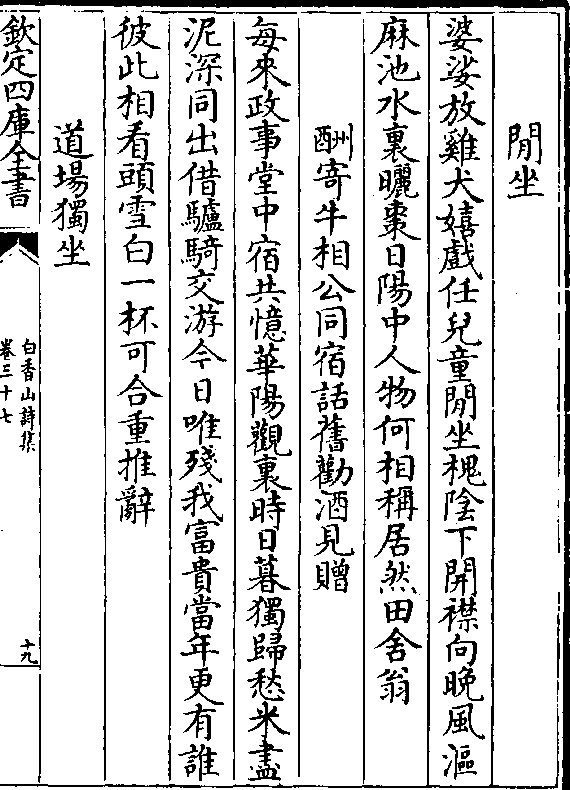 閒坐
婆娑放雞犬嬉戲任兒童閒坐槐陰下開襟向晚風漚
麻池水裏曬棗日陽中人物何相稱居然田舍翁
酬寄牛相公同宿話舊勸酒見贈
每來政事堂中宿共憶華陽觀裏時日暮獨歸愁米盡
泥深同出借驢騎交游今日唯殘我富貴當年更有誰
彼此相看頭雪白一杯可合重推辭
道場獨坐
欽定四庫全書
白香山詩集
卷三十七
十九